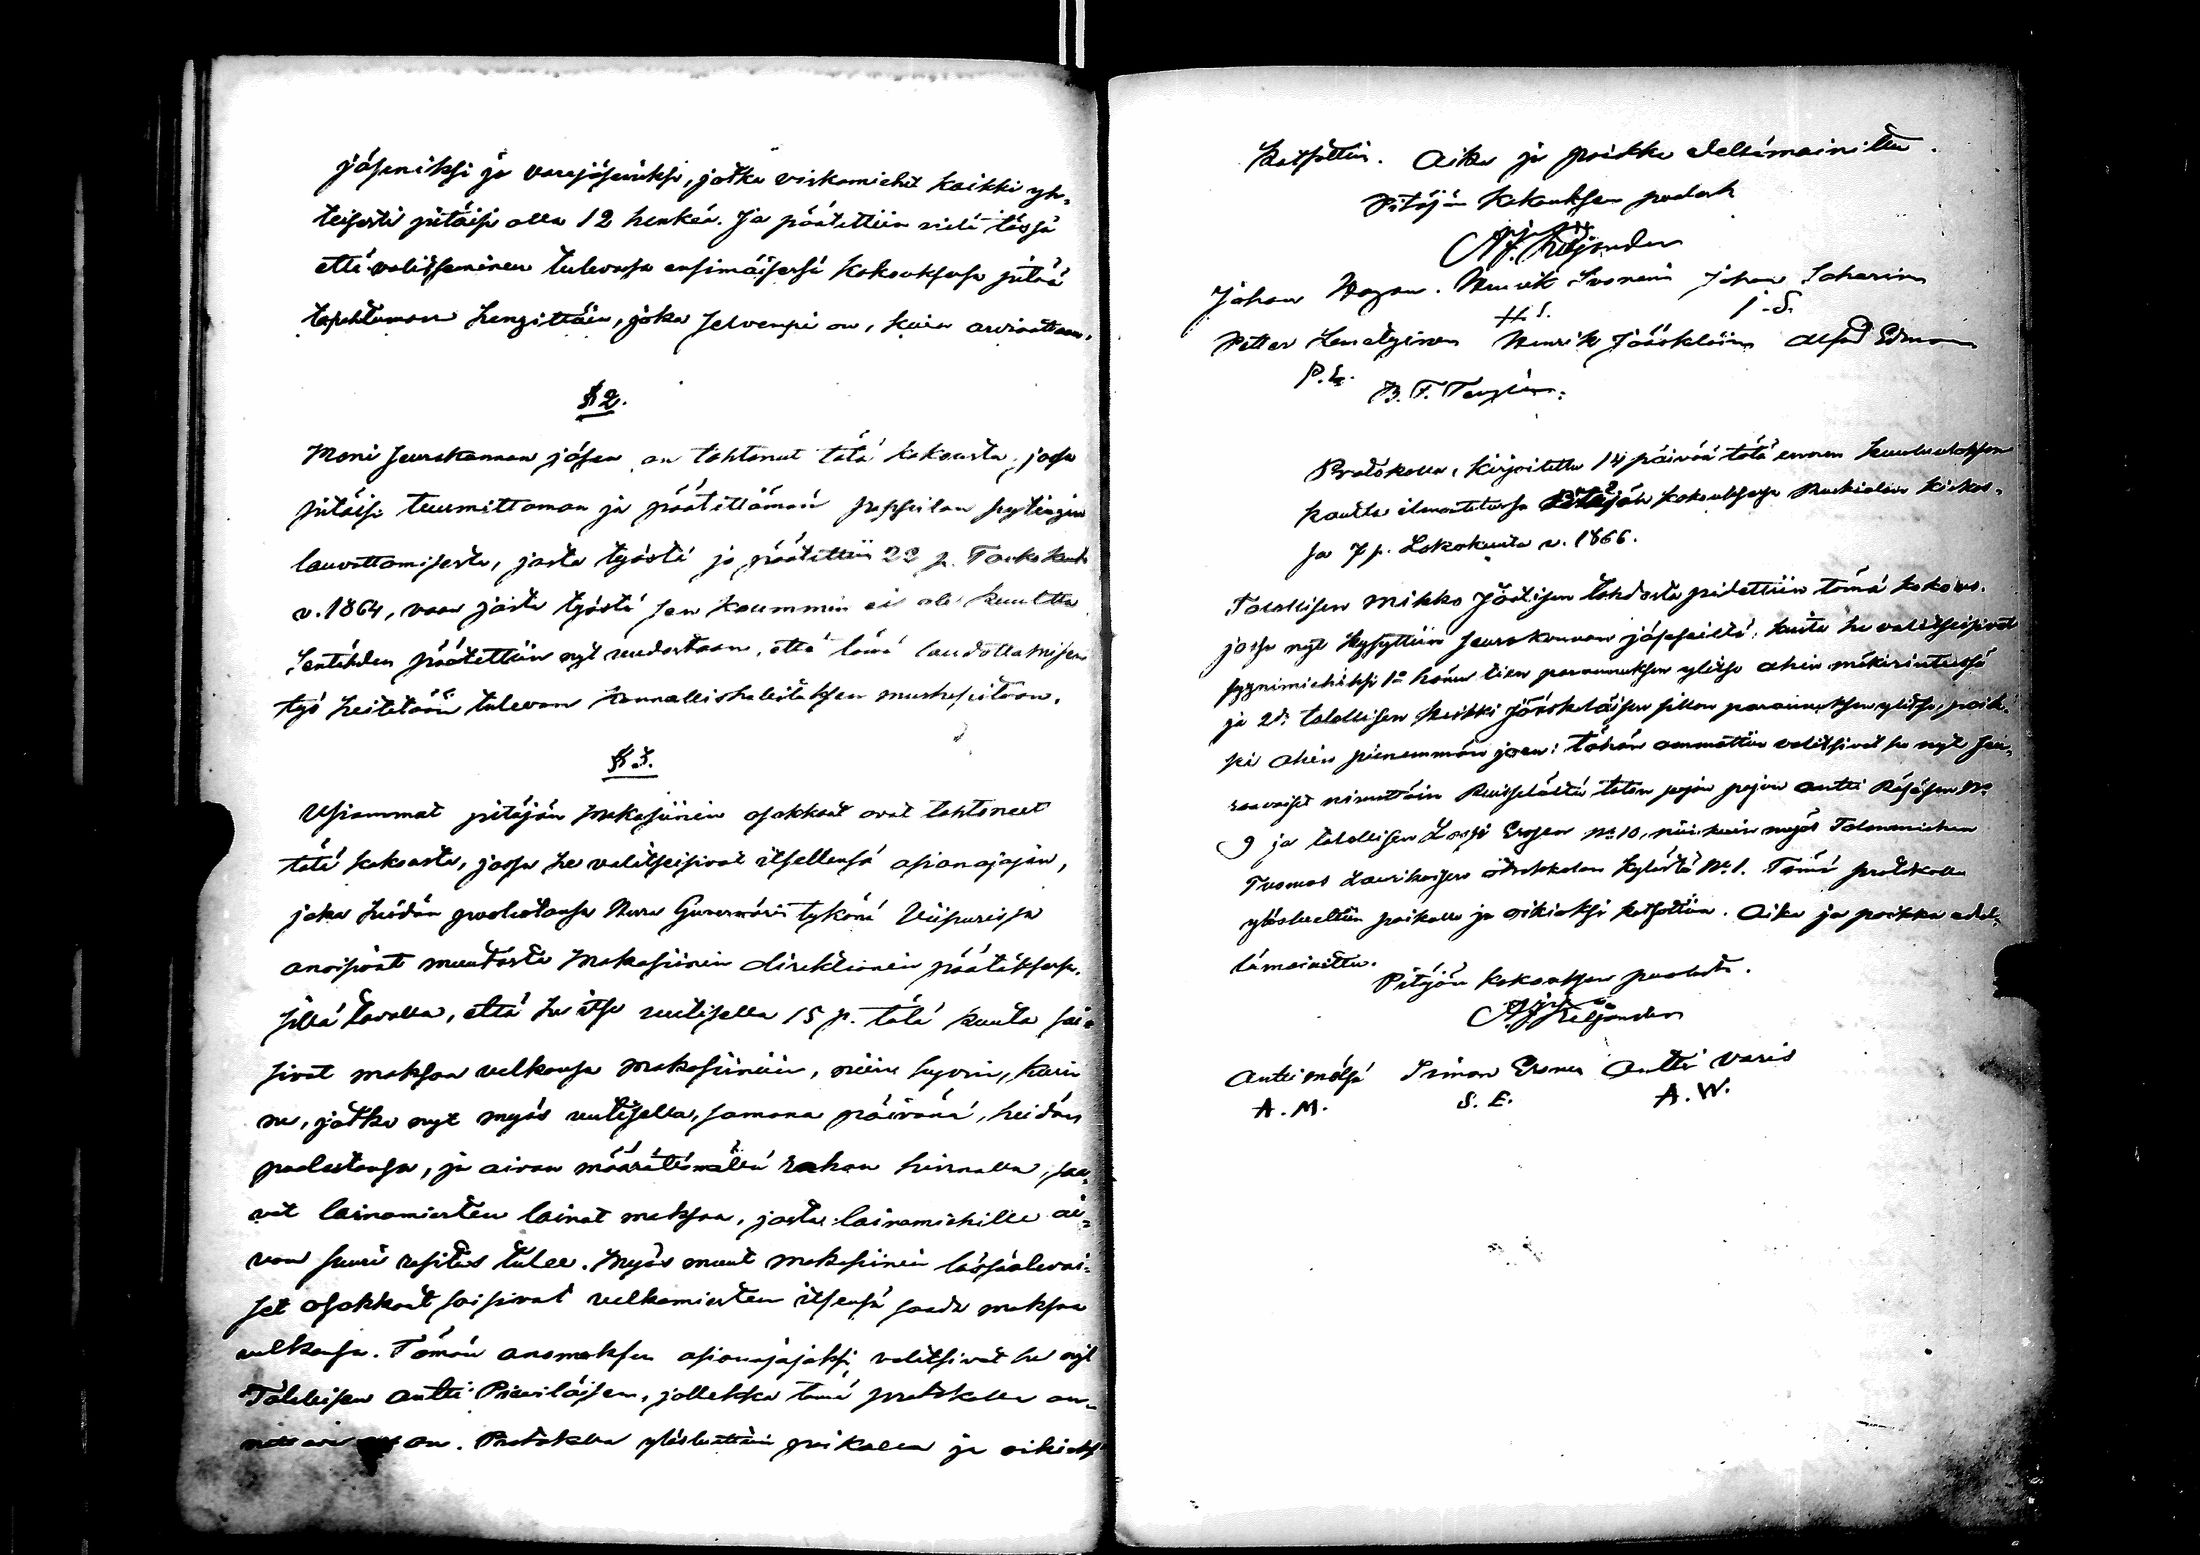 jäseniksi ja varajäseniksi, jotka virkamiehet kaikki yh-
teisesti pitäisi olla 12 henkeä. Ja päätettiin vielä tässä
että valitseminen tulevassa ensimäisessä kokouksessa pitää
tapahtuman hengittäin, joka selvempi on, kuin arvioittain.
§ 2.
Moni seurakunnan jäsen on tahtonut tätä kokousta, jossa
pitäisi tuumittaman ja päätettämän pappilan pytingin
lauvottamisesta, josta työstä jo päätettiin 22 p. Toukokuuta
v. 1864, vaan josta työstä sen kaummin ei ole kuultu
Sentähden päätettiin nyt uudestaan, että tämä laudottamisen
työ heitetään tulevan kunnallishallituksen murheesitaan.
§ 3.
Usiammat pitäjän makasiinin osakkaat ovat tahtoneet
tätä kokousta, jossa he valitseisivat itsellensä asianajajan,
joka heidän puolestansa Herra Guvernöörin tykönä Viipurissa
anoisivat muutosta Makasiinin direktionin päätökseen.
sillä tavalla, että he itse uutisella 15 p. tätä kuuta sai-
sivat maksaa velkansa Makasiiniin, niin hyvin, kuin
ne, jotka nyt myös uutisella, samana päivänä, heidän
puolestansa, ja aivan määrättömällä rahan hinnalla, saa-
vat lainamiesten lainat maksaa, josta lainamiehille ai-
van suuri rasitus tulee. Myös muut makasiinin läsnäolevai-
set osakkaat soisivat velkamiesten itsensä saada maksaa
velkansa. Tämän anomuksen asianajajaksi valitsivat he nyt
Talollisen Antti Pieniläisen, jollekka tämä protokolla an-
on. Protokolla ylösluettiin paikalla ja oikiaksi
katsottiin. Aika ja paikka edellämainittu.
Pitäjän kokouksen puolesta
Johan Henrik Ivonen Johan Saharinen
H. I. J. S.
Petter Henrik Jääskeläinen Alfred Edman
P. L.
B. F.
Protokolla, kirjoitettu 14 päivää tätä ennen kuulutuksen
kautta ilmoitetussa Pitäjän kokouksessa Ruskialan kirkos-
sa 7 p. Lokakuuta v. 1866.
Talollisen Mikko tahdosta pidettiin tämä kokous.
jossa nyt kysyttiin seurakunnan jäseniltä, keitä he valitseisivat
syynimiehiksi 1o hänen tien parannuksen ylitse ahin mäkirinteessä
ja 2o talollisen Heikki Jääskeläisen sillan parannuksen ylitse, poik-
ki ahin pienemmän joen: tähän ammattiin valitsivat he nyt seu-
raavaiset nimittäin talon pojan Antti Räsäsen No
9 ja talollisen Lassi Erosen No 10, niin kuin myös Talonmiehen
Tuomas Laurikaisen kylästä No 1. Tämä protokolla
ylösluettiin paikalla ja oikiaksi katsottiin. Aika ja paikka edel-
lämainittu.
Pitäjän kokouksen puolesta.
Antti Mölsä Simon Eronen Antti Varis
A. M. S. E. A. W.